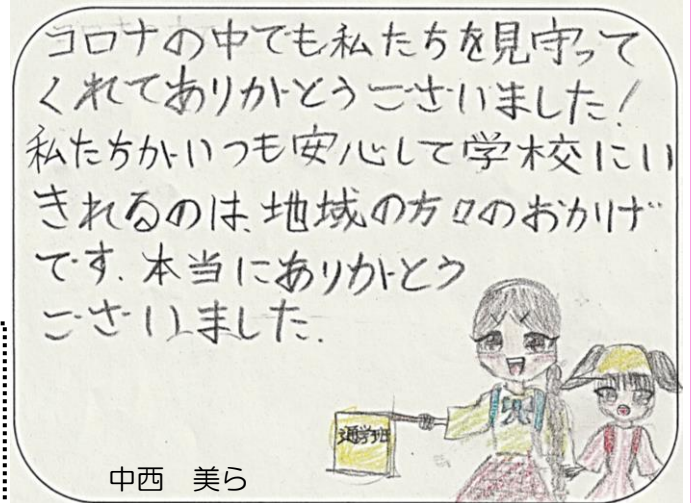 コロナの中でも私たちを見守って
くれてありがとうございました!
私たちがいつも安心して学校にい
きれるのは、地域の方々のおかげ
です。本当にありがとう
ございました。
通学班
中西 美ら